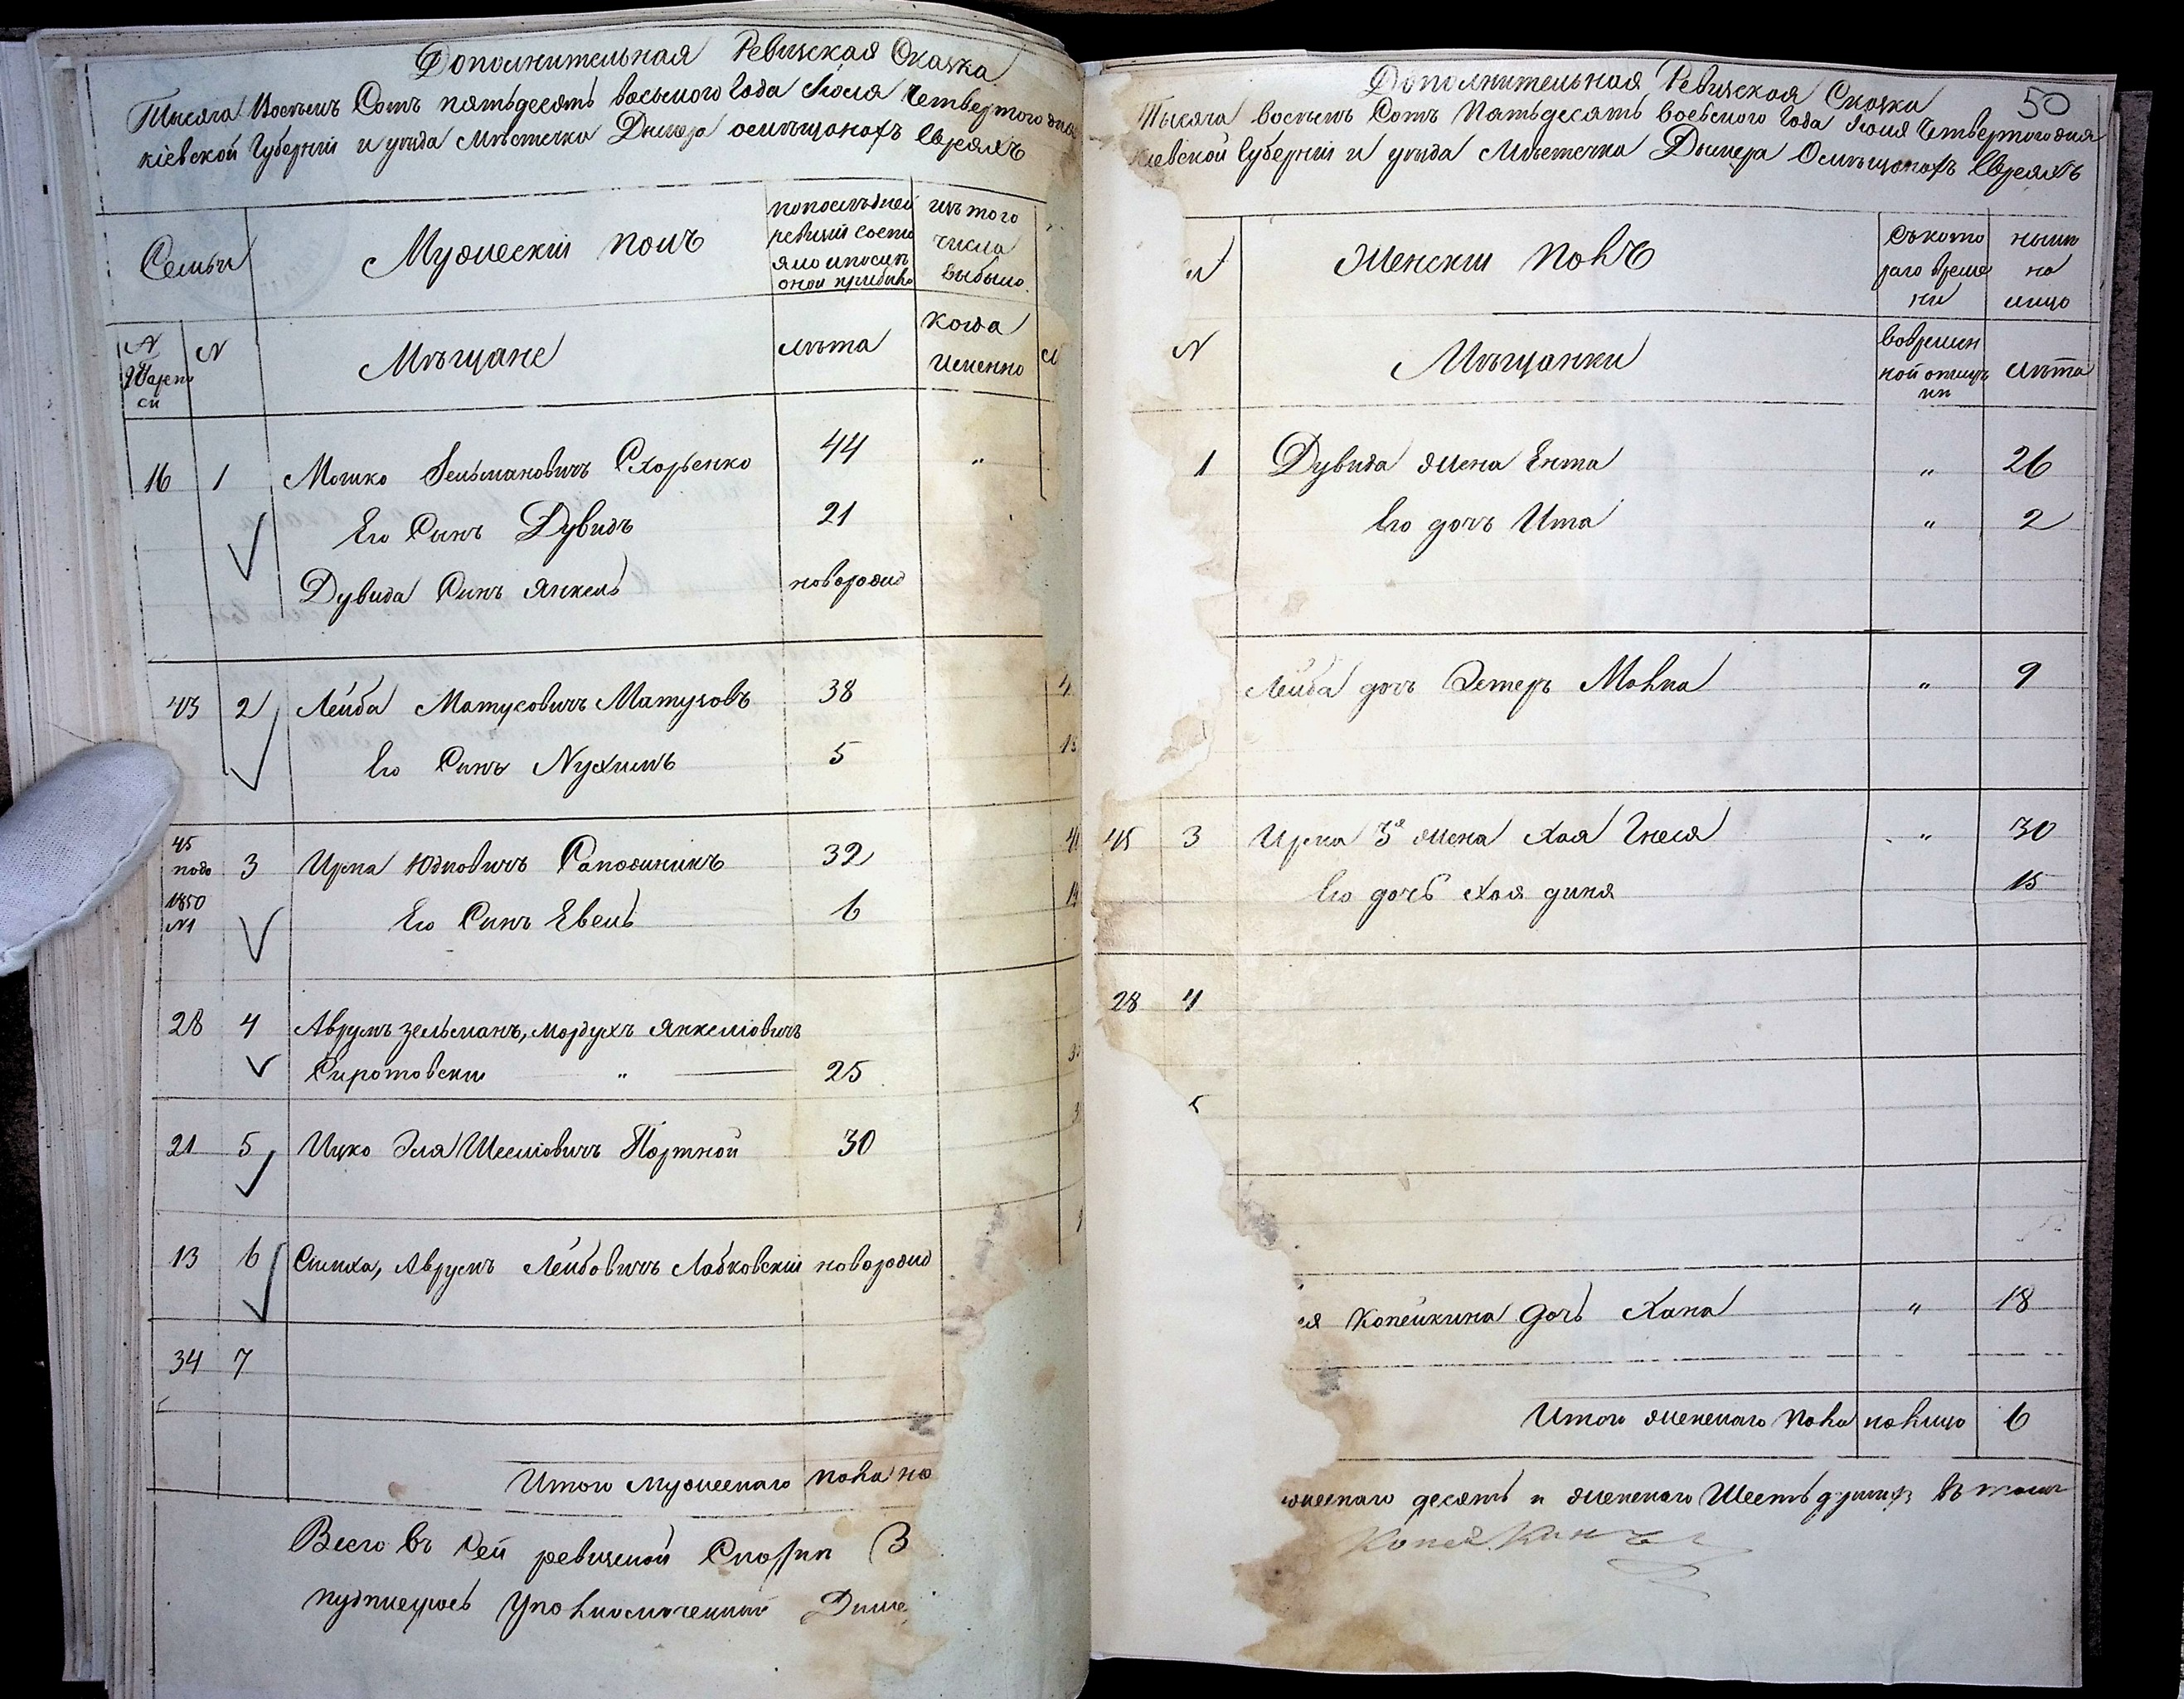 Дополнительная Ревизская Сказка
Тысяча Восемъ Сотъ пятьдесятъ восьмого Года Іюля Четвертого дня
кіевской Губерніи и уезда Мѣстечка Дымера омѣщанахъ Евреяхъ
Семьи
Мужескій полъ
попослѣдней
ревизіи состо
яло ипослѣ
оной прибыло
изъ того
числа
выбыло
N
N
Мѣщане
лѣта
когда
именно
16 1 Мошко Зельмановичъ Сторенко 44 "
Его Синъ Дувидъ 21
Дувида Синъ Янкель новорожд
43 2 Лейба Матусовичъ Матусовъ 38
Его Синъ Нухимъ 5
45 3 Ирпа Юдковичъ Сапожникъ 32
1850
N1
Его Синъ Евель 6
28 4 Аврумъ зельманъ, мордухъ Янкелιовичъ
Сиротовски " 25
21 5 Ицко Эля Шеелιовичъ Портной 30
13 6 Симха, Аврумъ Лейбовичъ Лабковскій новорожд
34 7
Итого мужескаго пола на
Всего въ сей ревизской Сказки
Дополнительная Ревизская Сказка 50
Тысяча восемъ Сотъ Пятьдесятъ восьмого Года Іюля Четвертого дня
Кіевской Губерніи и уезда Мѣстечка Дымера Омѣщанахъ Евреяхъ
Женскій полъ
Съкото
раго време
ни
ныне
на
лицо
N
Мѣщанки
вовремен
ной отлуч
ки
лѣта
1 Дувида жена Ента " 26
Его дочъ Ита " 2
Лейба дочъ Эстеръ Малка " 9
45 3 Ирпа 3я жена Хая Гнеся " 30
Его дочь Хая диня 15
28 4
5
Копейкина дочь Хана " 18
Итого женскаго пола налицо 6
десять и женскаго Шесть душъ въ томъ
Копейкинъ